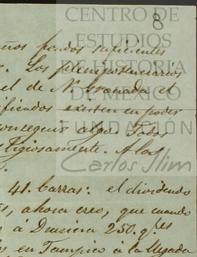 8
CENTRO DE
ESTUDIOS
DE HISTORIA
DE MÉXICO
FUNDACIÓN
Carlos Slim
fondos suficientes
Los plenipotenciarios
el de Na. Granada el
existen en poder
conseguir algo
religiosamente. A los
41. barras: el dividendo
, ahora creo, que cuando
a 250. q.es
en Tampico á la llegada